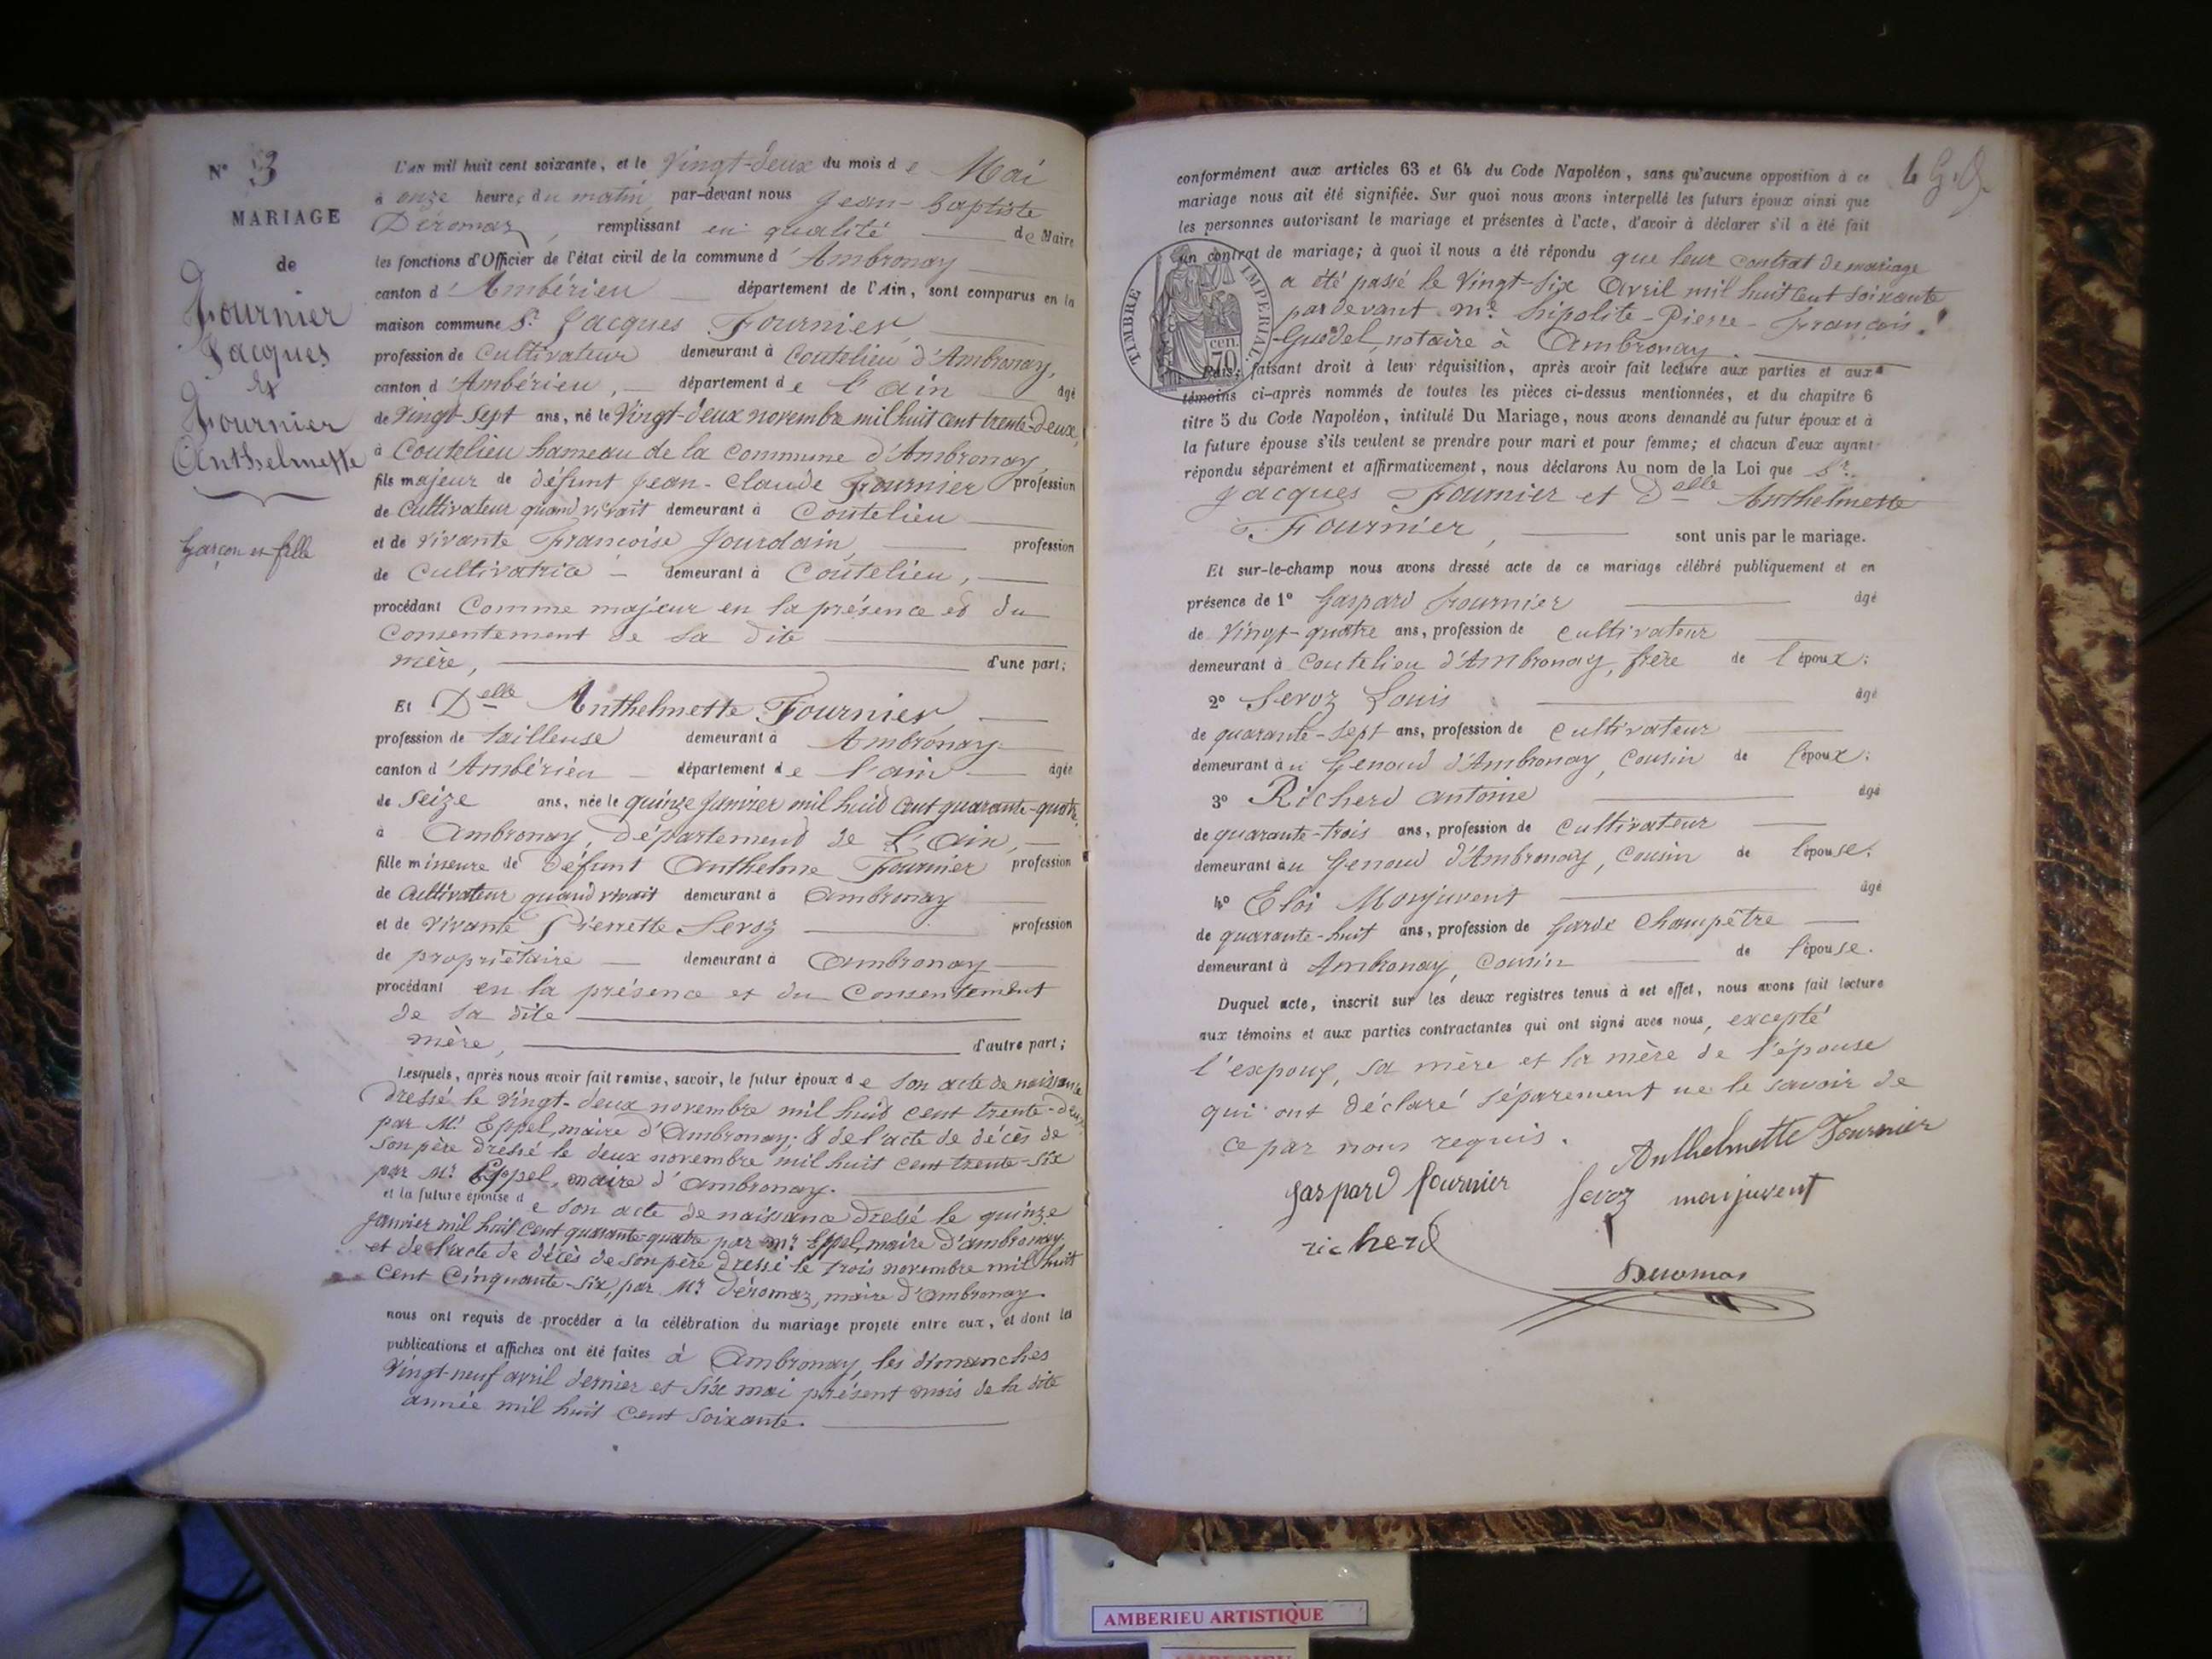 N° 3
MARIAGE
de
Fournier
Jacques
Et
Fournier
Anthelmette
Garçon et fille
L'an mil huit cent soixante, et le Vingt-deux du mois de Mai
à onze heures du matin, par-devant nous Jean-Baptiste
Déromaz, remplissant en qualité de Maire
les fonctions d'Officier de l'état civil de la commune d'Ambronay
canton d'Ambérieu département de l'Ain, sont comparus en la
maison commune Sr. Jacques Fournier,
profession de Cultivateur demeurant à Coutelieu d'Ambronay,
canton d'Ambérieu, département de l'ain âgé
de Vingt-Sept ans, né le Vingt-deux novembre mil huit cent trente-deux,
à Coutelieu hameau de la Commune d'Ambronay
fils majeur de défunt Jean-Claude Fournier profession
de Cultivateur quand vivait demeurant à Coutelieu
et de vivante Françoise Jourdain, profession
de Cultivatrice demeurant à Coutelieu,
procédant Comme majeur en la présence et du
Consentement de sa dite
mère, d'une part;
Et Delle Anthelmette Fournier,
profession de tailleuse demeurant à Ambronay
canton d'Ambérieu département de l'ain âgée
de Seize ans, née le quinze Janvier mil huit cent quarante-quatre,
à Ambronay, département de L'Ain,
fille mineure de défunt Anthelme Fournier profession
de Cultivateur quand vivait demeurant à Ambronay
et de vivante Pierrette Servoz profession
de propriétaire demeurant à Ambronay
procédant en la présence et du Consentement
de sa dite
mère, d'autre part;
Lesquels, après nous avoir fait remise, savoir, le futur époux de son acte de naissance
dressé le Vingt-deux novembre mil huit cent trente-deux
par Mr. Eppel, maire d'Ambronay; & de l'acte de décès de
son père dressé le deux novembre mil huit cent trente-six
par Mr. Eppel, maire d'Ambronay.
et la future épouse de son acte de naissance dressé le quinze
Janvier mil huit cent quarante-quatre par Mr. Eppel, maire d'ambronay,
et de l'acte de décès de son père dressé le trois novembre mil huit
cent Cinquante-six, par Mr. Déromaz, maire d'Ambronay.
nous ont requis de procéder à la célébration du mariage projeté entre eux, et dont les
publications et affiches ont été faites à Ambronay, les dimanches
Vingt-neuf avril dernier et Six mai présent mois de la dite
année mil huit cent soixante.
4
conformément aux articles 63 et 64 du Code Napoléon, sans qu'aucune opposition à ce
mariage nous ait été signifiée. Sur quoi nous avons interpellé les futurs époux ainsi que
les personnes autorisant le mariage et présentes à l'acte, d'avoir à déclarer s'il a été fait
un contrat de mariage; à quoi il nous a été répondu que leur Contrat de mariage
a été passé le Vingt-six Avril mil huit cent soixante
pardevant Me. hipolite-Pierre-François
notaire à Ambronay
TIMBRE IMPERIAL
70 cen.
Puis, faisant droit à leur réquisition, après avoir fait lecture aux parties et aux
témoins ci-après nommés de toutes les pièces ci-dessus mentionnées, et du chapitre 6
titre 5 du Code Napoléon, intitulé Du Mariage, nous avons demandé au futur époux et à
la future épouse s'ils veulent se prendre pour mari et pour femme; et chacun d'eux ayant
répondu séparément et affirmativement, nous déclarons Au nom de la Loi que Sr.
Jacques Fournier et Delle Anthelmette
Fournier, sont unis par le mariage.
Et sur-le-champ nous avons dressé acte de ce mariage célébré publiquement et en
présence de 1° Gaspard Fournier âgé
de Vingt-quatre ans, profession de Cultivateur
demeurant à Coutelieu d'Ambronay, frère de l'époux;
2° Servoz Louis âgé
de quarante-sept ans, profession de Cultivateur
demeurant au Genoud d'Ambronay, Cousin de l'époux;
3° Richerd antoine âgé
de quarante-trois ans, profession de Cultivateur
demeurant au Genoud d'Ambronay, Cousin de l'épouse.
4° Eloi Monjuvent âgé
de quarante-huit ans, profession de Garde Champêtre
demeurant à Ambronay, Cousin de l'épouse.
Duquel acte, inscrit sur les deux registres tenus à cet effet, nous avons fait lecture
aux témoins et aux parties contractantes qui ont signé avec nous, excepté
l'expoux, sa mère et la mère de l'épouse
qui ont déclaré séparement ne le savoir de
ce par nous requis.
Anthelmette Fournier
gaspard fournier Servoz monjuvent
richerd
Deromas
AMBERIEU ARTISTIQUE
AMBERIEU